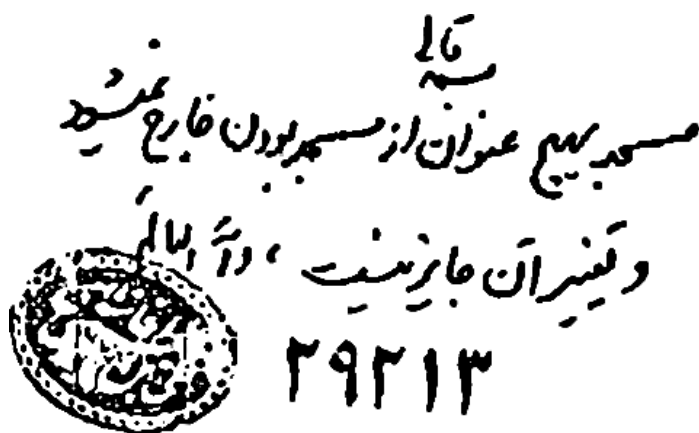 بسمه تعالی
مسجد بهیچ عنوان از مسجد بودن خارج نمیشود
و تغییر آن جایز نیست، والله العالم
۲۹۲۱۳